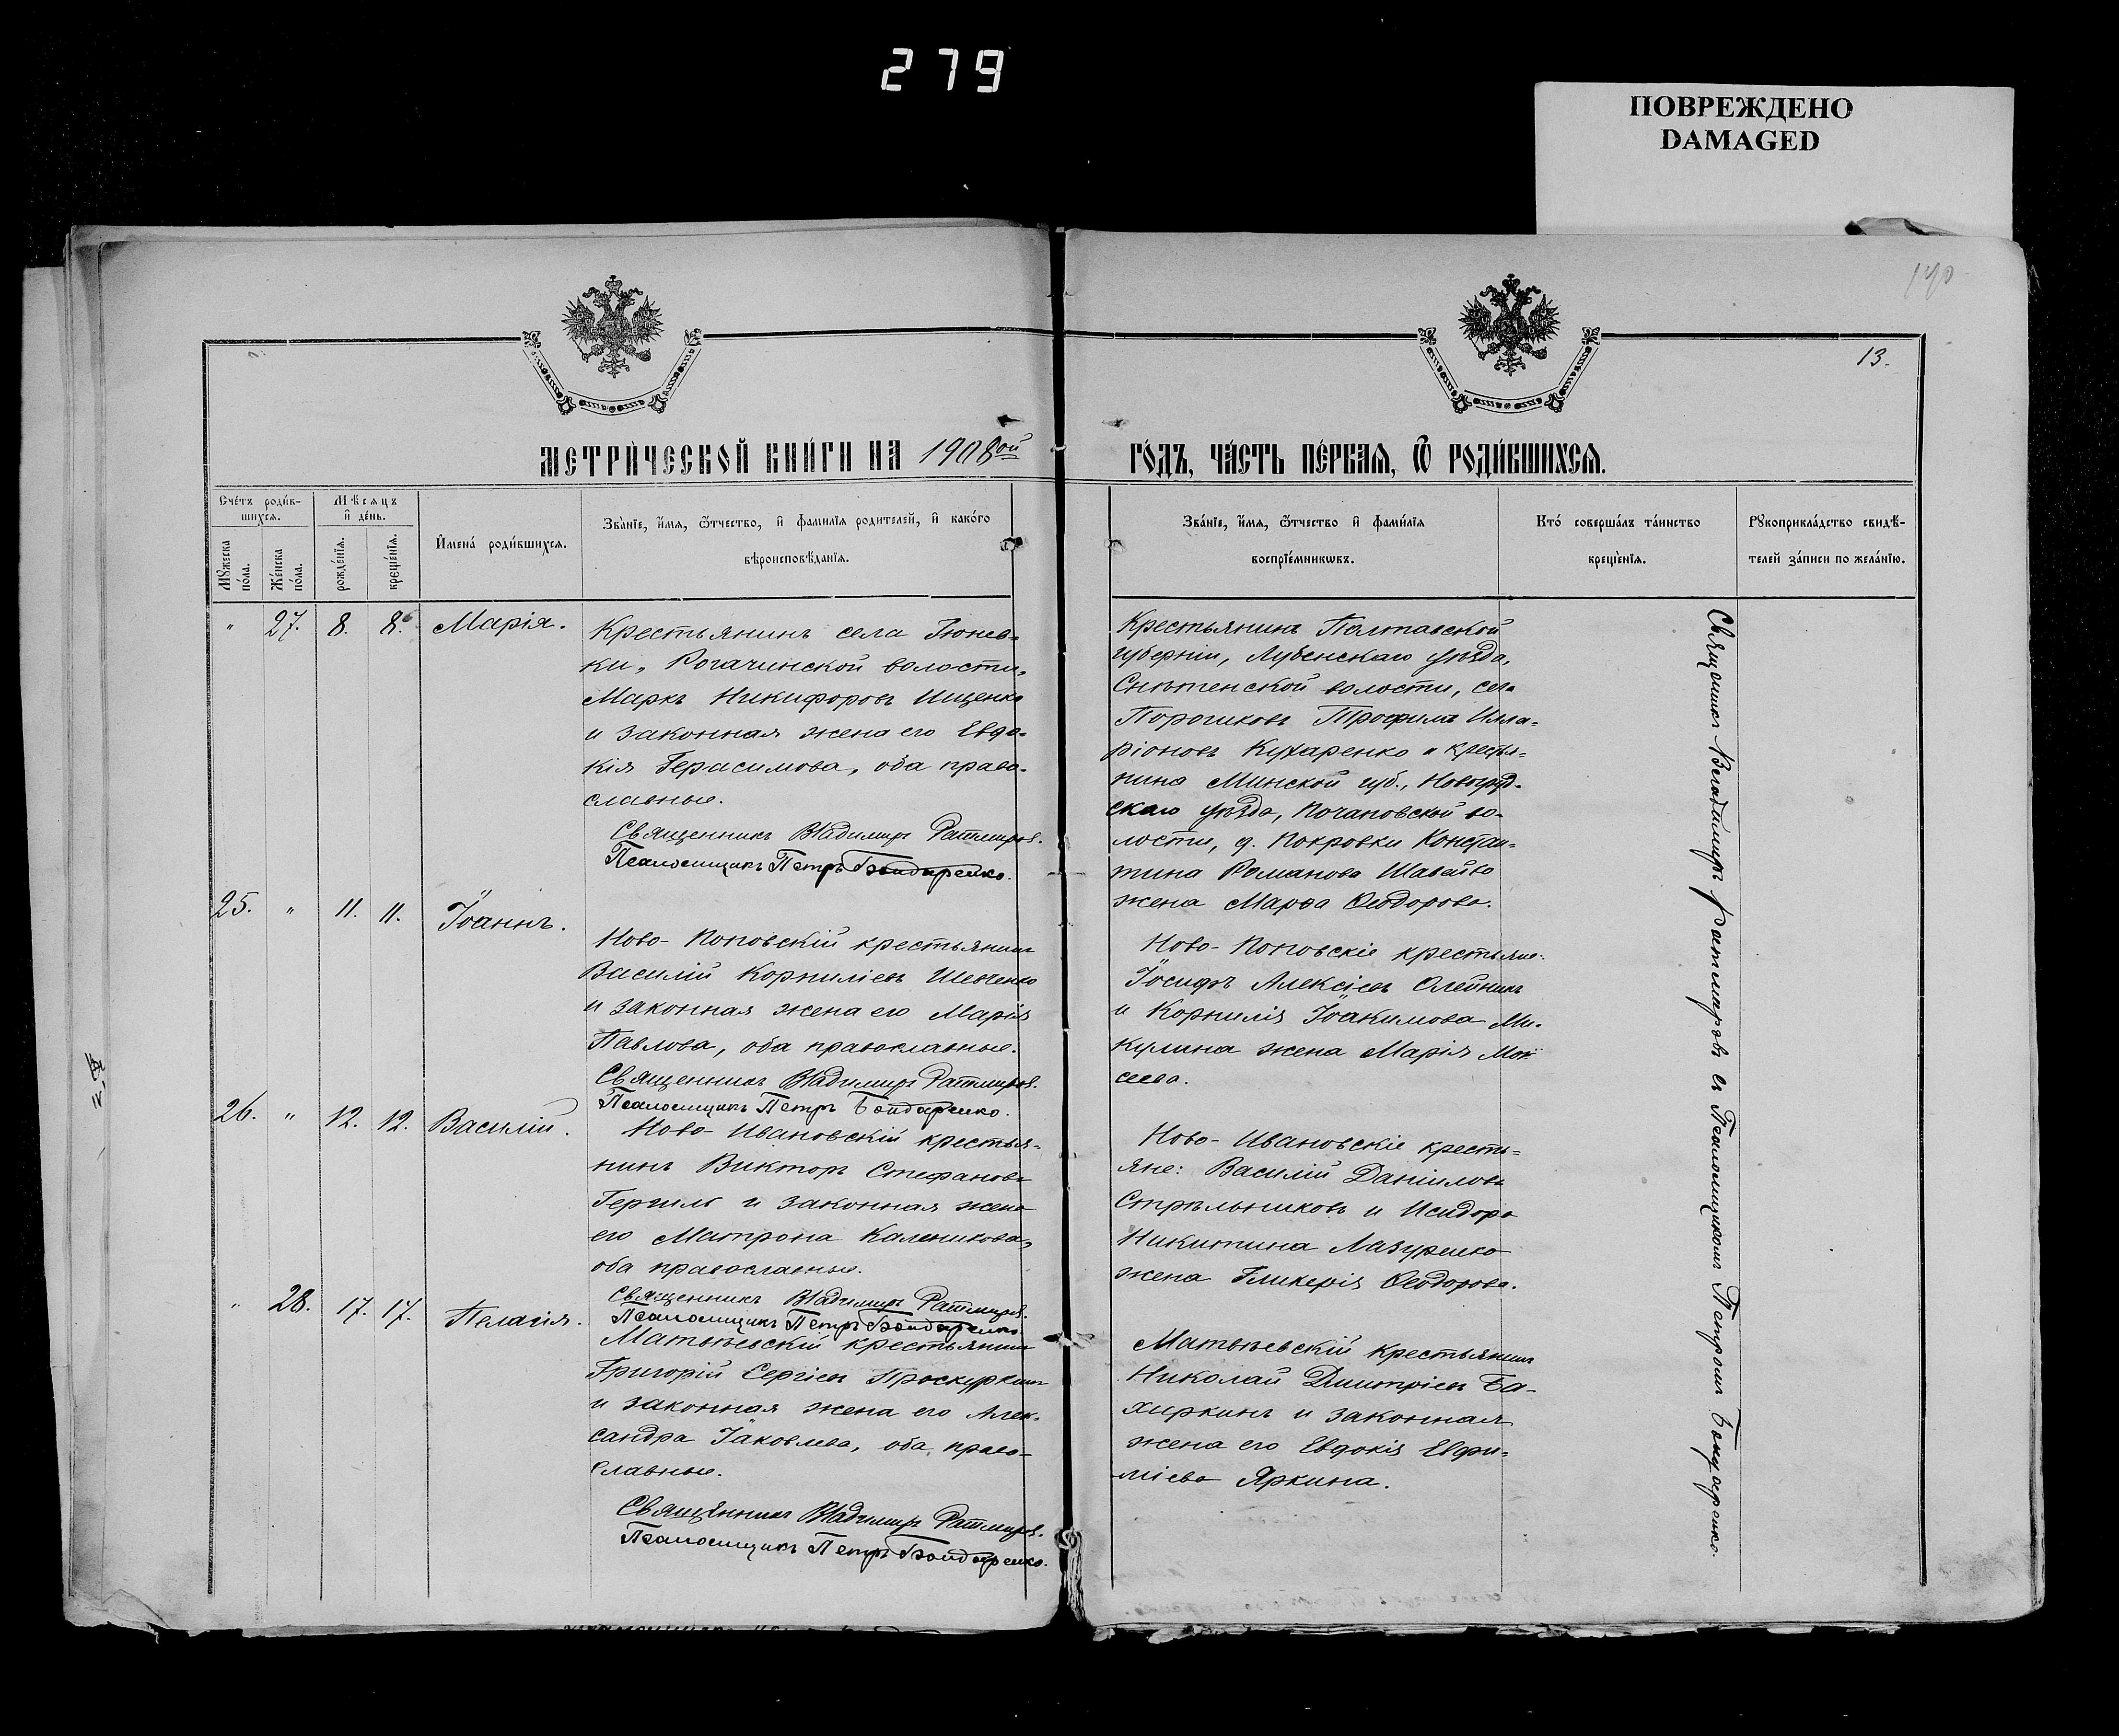 279
ПОВРЕЖДЕНО
DAMAGED
13.
МЕТРИЧЕСКОЙ КНИГИ НА 1908ой
ГОДЪ, ЧАСТЬ ПЕРВАЯ, Ѡ РОДИВШИХСЯ.
Счетъ родив-
шихся.
Мѣсяцъ
и день.
Мужеска
пола.
Женска
пола.
рожденія.
крещенія.
Имена родившихся.
Званіе, имя, ѿчество, и фамилія родителей, и какого
вѣроисповѣданія.
Званіе, имя, ѿчество и фамилія
воспріемникѡвъ.
Кто совершалъ таинство
крещенія.
Рукоприкладство свидѣ-
телей записи по желанію.
" 27. 8. 8. Марія.
Крестьянинъ села
ки, Рогачинской волости,
Маркъ Никифоровъ Ищенко
и законная жена его Евдо-
кія Герасимова, оба право-
славные.
Священникъ Владимиръ Ратмировъ.
Псаломщикъ Петръ Бондаренко.
Крестьянинъ Полтавской
губерніи, Лубенскаго уѣзда,
Снѣтенской волости, села
Трофимъ Илла-
ріоновъ Кухаренко и крестья-
нина Минской губ., Новогруд-
скаго уѣзда, Почаповской во-
лости, д. Покровки Констан-
тина Романова
жена Марѳа Ѳеодорова.
25. " 11. 11. Іоаннъ.
Ново-Поповскій крестьянинъ
Василій Корниліевъ Шевченко
и законная жена его Марія
Павлова, оба православные.
Священникъ Владимиръ Ратмировъ.
Псаломщикъ Петръ Бондаренко.
Ново-Поповскіе крестьяне:
Іосифъ Алексіевъ Олейникъ
и Корнилія Іоакимова Ми-
кулина жена Марія Мои-
сеева.
26. " 12. 12. Василій.
Ново-Ивановскій крестья-
нинъ Викторъ Стефановъ
и законная жена
его Матрона Каленикова,
оба православные.
Священникъ Владимиръ Ратмировъ.
Псаломщикъ Петръ Бондаренко.
Ново-Ивановскіе кресть-
яне: Василій Даніиловъ
Стрѣльниковъ и Исидора
Никитина Лазуренко
жена Гликерія Ѳеодорова.
" 28. 17. 17. Пелагія.
Матвѣевскій крестьянинъ
Григорій Сергіевъ Проскуркинъ
и законная жена его Алек-
сандра Іаковлева, оба право-
славные.
Священникъ Владимиръ Ратмировъ.
Псаломщикъ Петръ Бондаренко.
Матвѣевскій крестьянинъ
Николай Димитріевъ Ба-
хиркинъ и законная
жена его Евдокія Евфи-
міева Яркина.
Священникъ Владимиръ Ратмировъ съ Псаломщикомъ Петромъ Бондаренко.